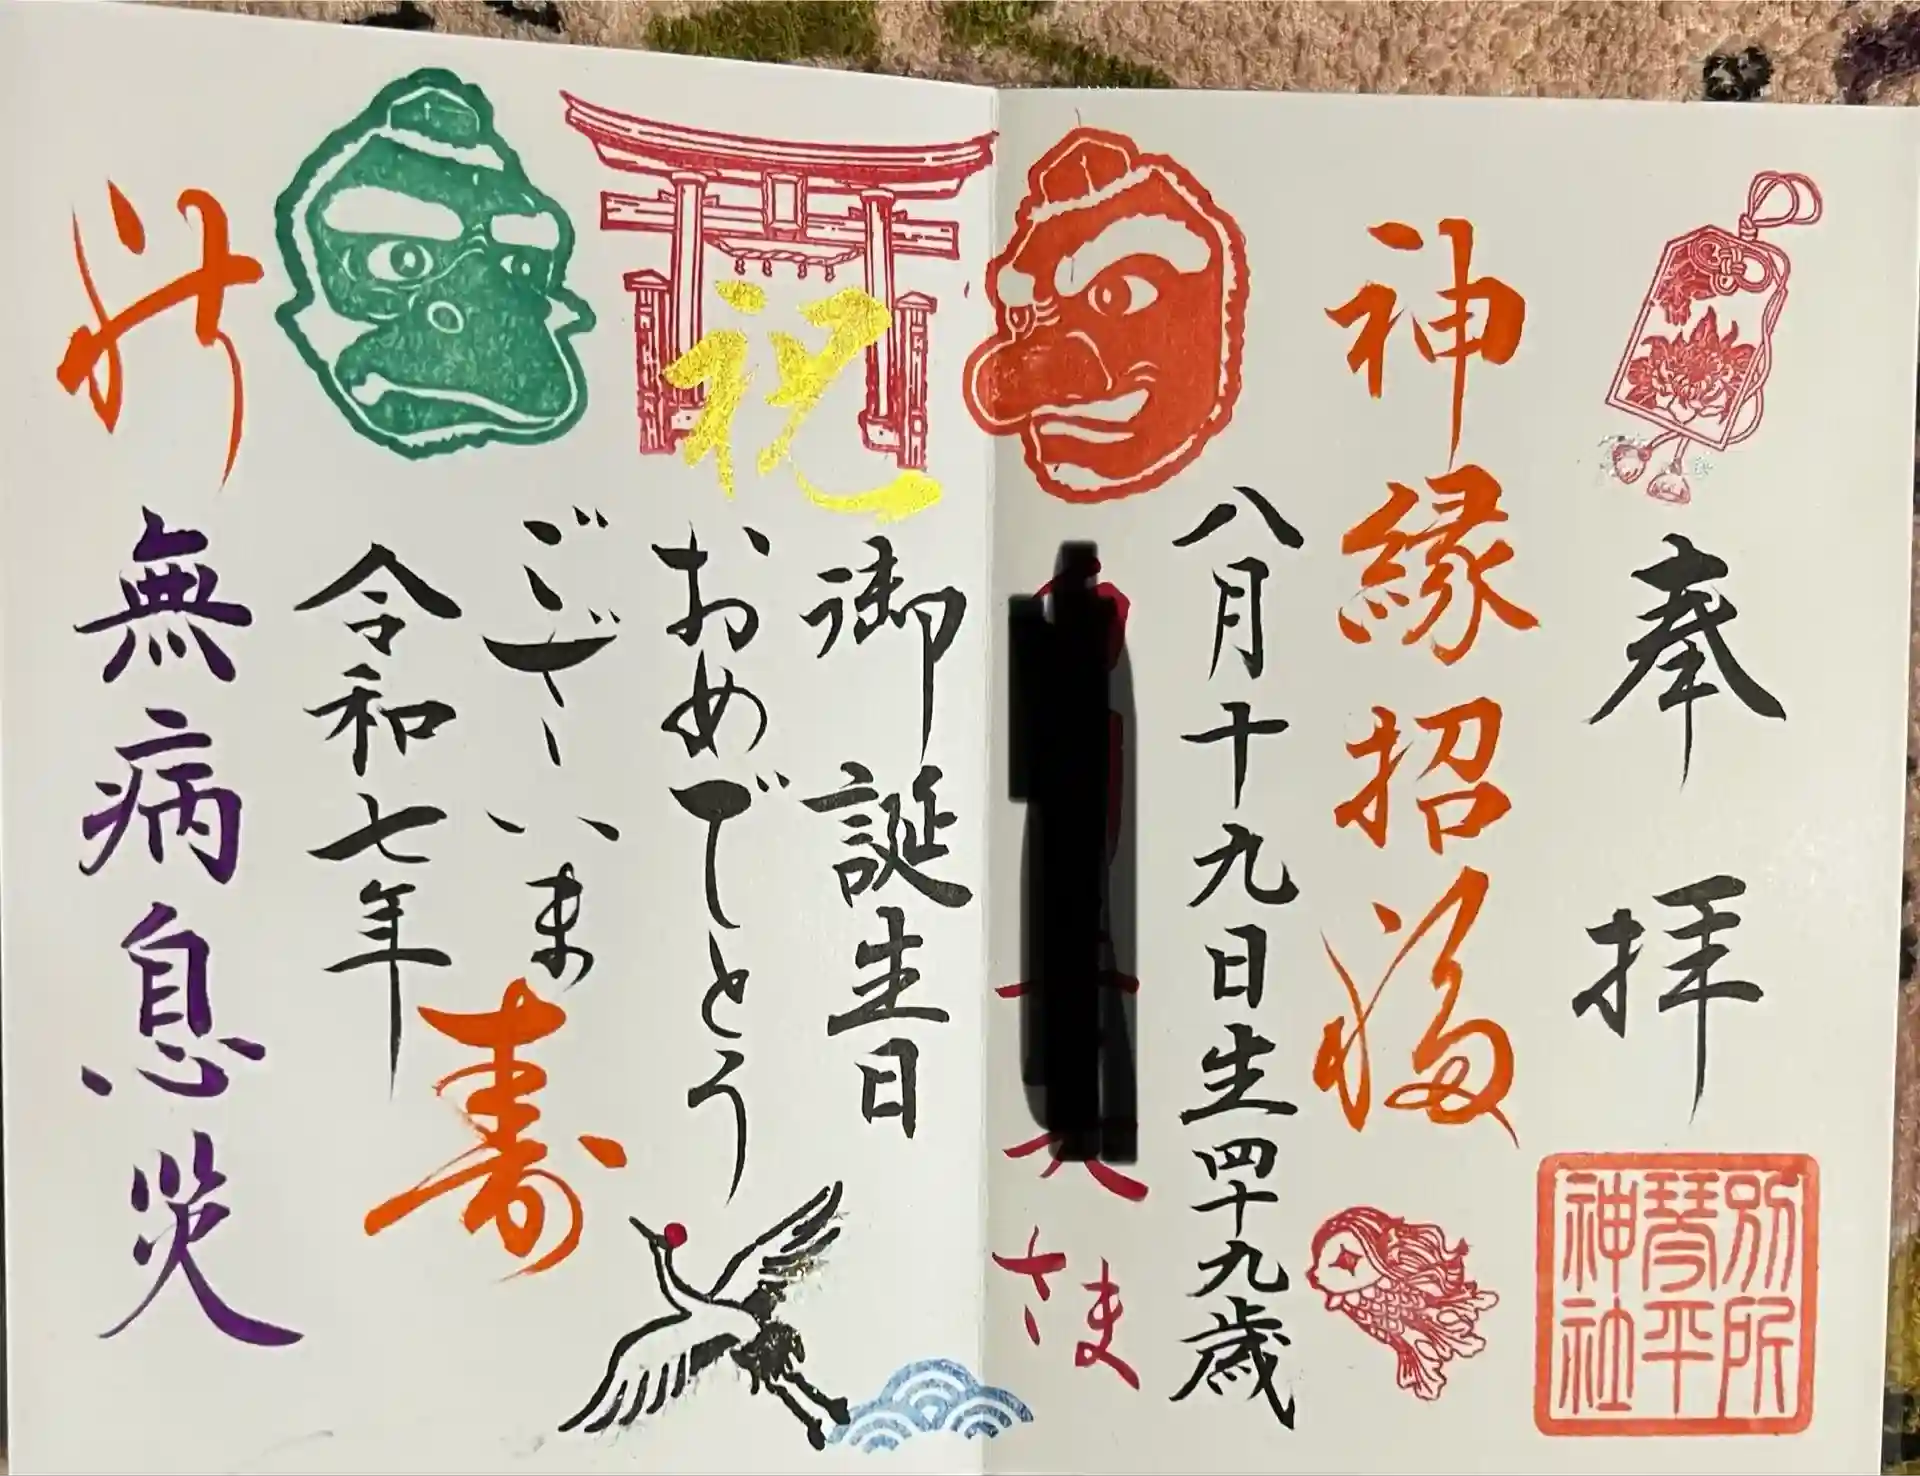 奉拝
別所
琴平
神社
神縁招福
八月十九日生四十九歳
さま
祝
御誕生日
おめでとう
ございま
寿
令和七年
祈
無病息災